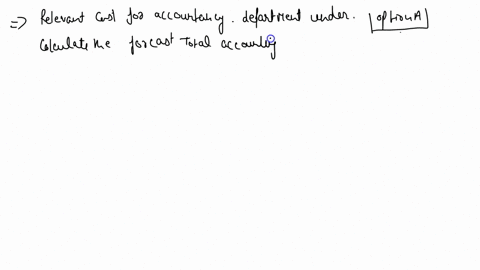 => Relevant Cost for accountancy. department under. option A
Calculate the forcast Total accounting